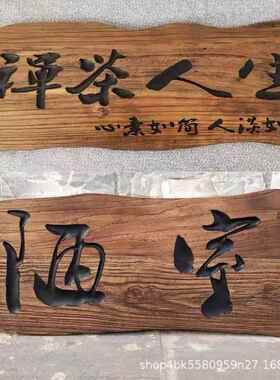 禪茶人生
心素如简 人淡如
陋室
shop4bk5580959n27.16